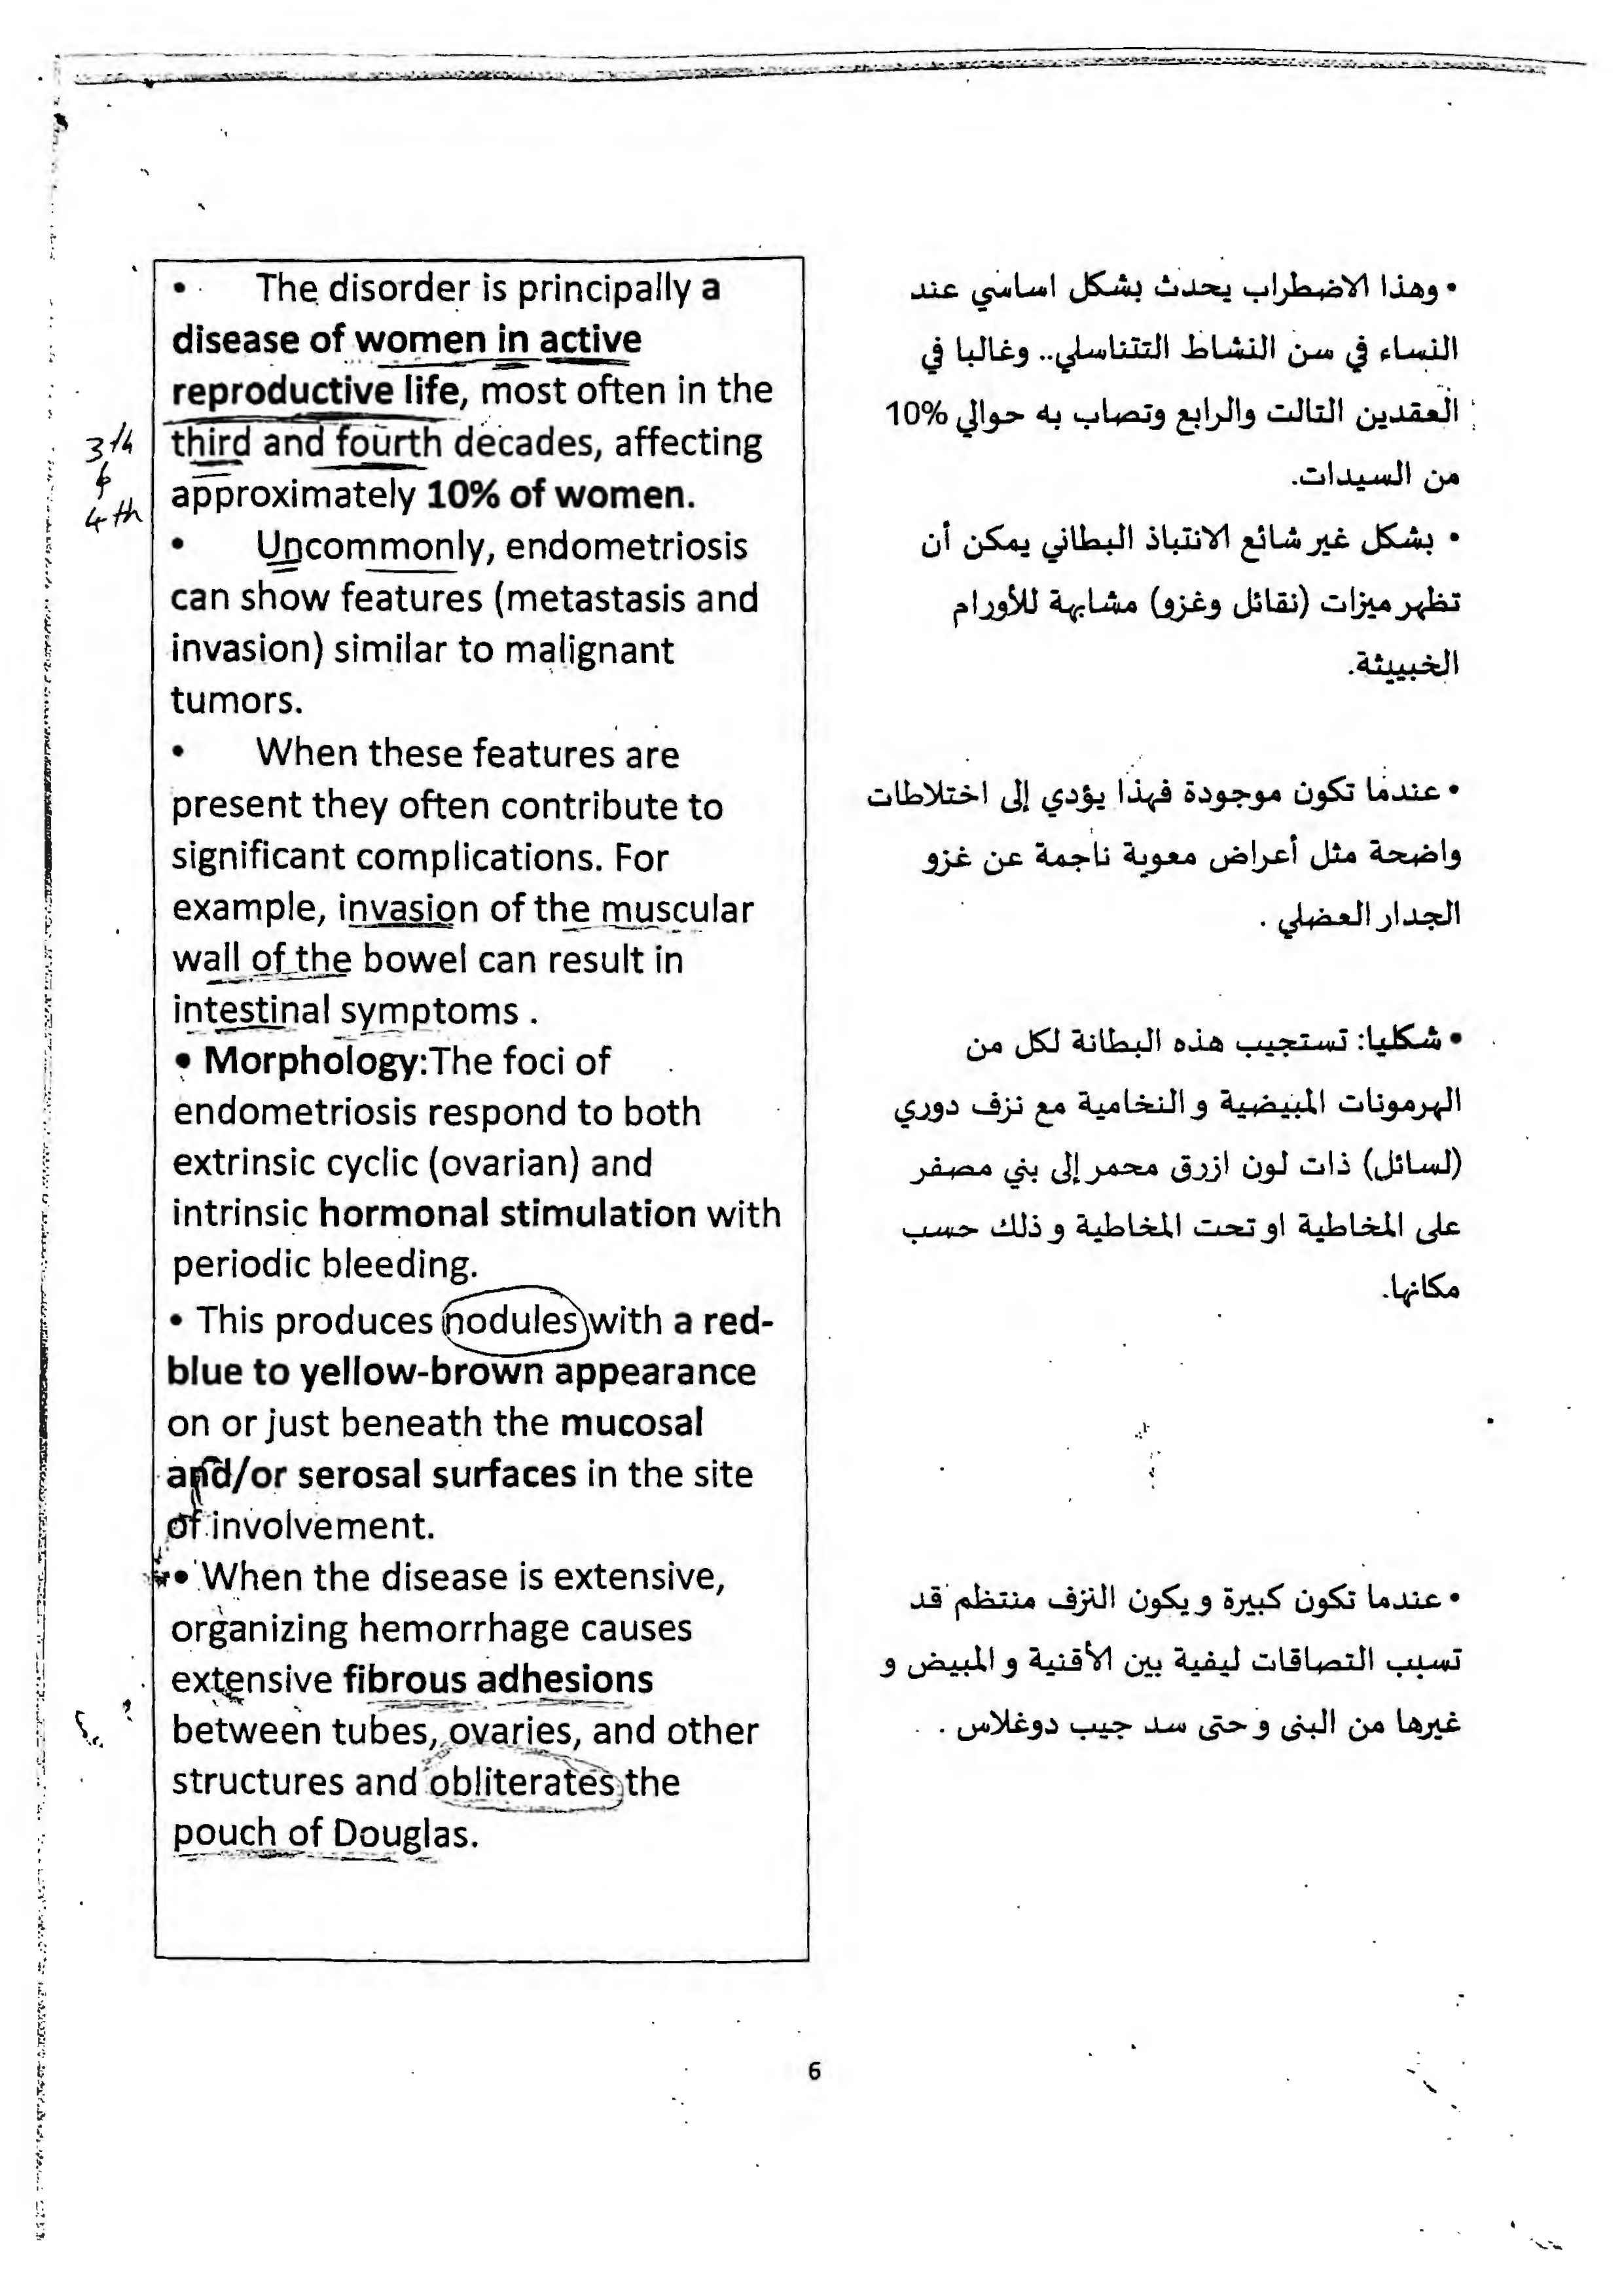 • The disorder is principally a
disease of women in active
reproductive life, most often in the
third and fourth decades, affecting
approximately 10% of women.
• Uncommonly, endometriosis
can show features (metastasis and
invasion) similar to malignant
tumors.
• When these features are
present they often contribute to
significant complications. For
example, invasion of the muscular
wall of the bowel can result in
intestinal symptoms .
• Morphology:The foci of
endometriosis respond to both
extrinsic cyclic (ovarian) and
intrinsic hormonal stimulation with
periodic bleeding.
• This produces nodules with a red-
blue to yellow-brown appearance
on or just beneath the mucosal
and/or serosal surfaces in the site
of involvement.
• When the disease is extensive,
organizing hemorrhage causes
extensive fibrous adhesions
between tubes, ovaries, and other
structures and obliterates the
pouch of Douglas.
3th
&
4th
• وهذا الاضطراب يحدث بشكل اساسي عند
النساء في سن النشاط التتناسلي.. وغالبا في
العقدين التالت والرابع وتصاب به حوالي 10%
من السيدات.
• بشكل غير شائع الانتباذ البطاني يمكن أن
تظهر ميزات (نقائل وغزو) مشابهة للأورام
الخبييثة.
• عندما تكون موجودة فهذا يؤدي إلى اختلاطات
واضحة مثل أعراض معوية ناجمة عن غزو
الجدار العضلي .
• شكليا: تستجيب هذه البطانة لكل من
الهرمونات المبيضية و النخامية مع نزف دوري
(لسائل) ذات لون ازرق محمر إلى بني مصفر
على المخاطية او تحت المخاطية و ذلك حسب
مكانها.
• عندما تكون كبيرة و يكون النزف منتظم قد
تسبب التصاقات ليفية بين الأقنية و المبيض و
غيرها من البنى و حتى سد جيب دوغلاس .
6